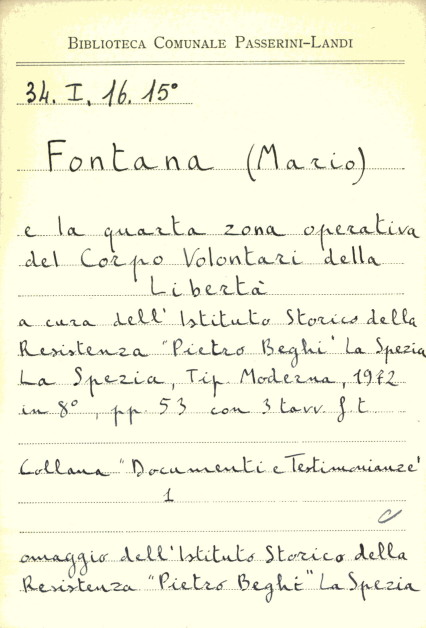 BIBLIOTECA COMUNALE PASSERINI-LANDI
34. I. 16. 15°
Fontana (Mario)
e la quarta zona operativa
del Corpo Volontari della
Libertà
a cura dell' Istituto Storico della
Resistenza "Pietro Beghi" La Spezia
La Spezia, Tip. Moderna, 1972
in 8°, pp. 53 con 3 tavv. f. t.
Collana "Documenti e Testimonianze"
1
omaggio dell'Istituto Storico della
Resistenza "Pietro Beghi" La Spezia